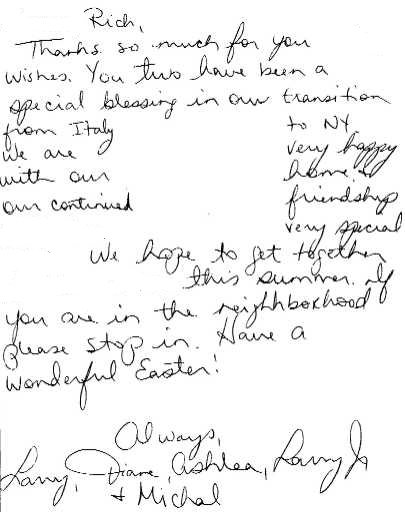 Rich,
Thanks so much for you
wishes. You two have been a
special blessing in our transition
from Italy to NY
We are very happy
with our home &
our continued friendship
very special
We hope to get together
this summer. If
you are in the neighborhood
please stop in. Have a
wonderful Easter!
Always,
Larry, Diane, Ashlea, Larry Jr
+ Michal